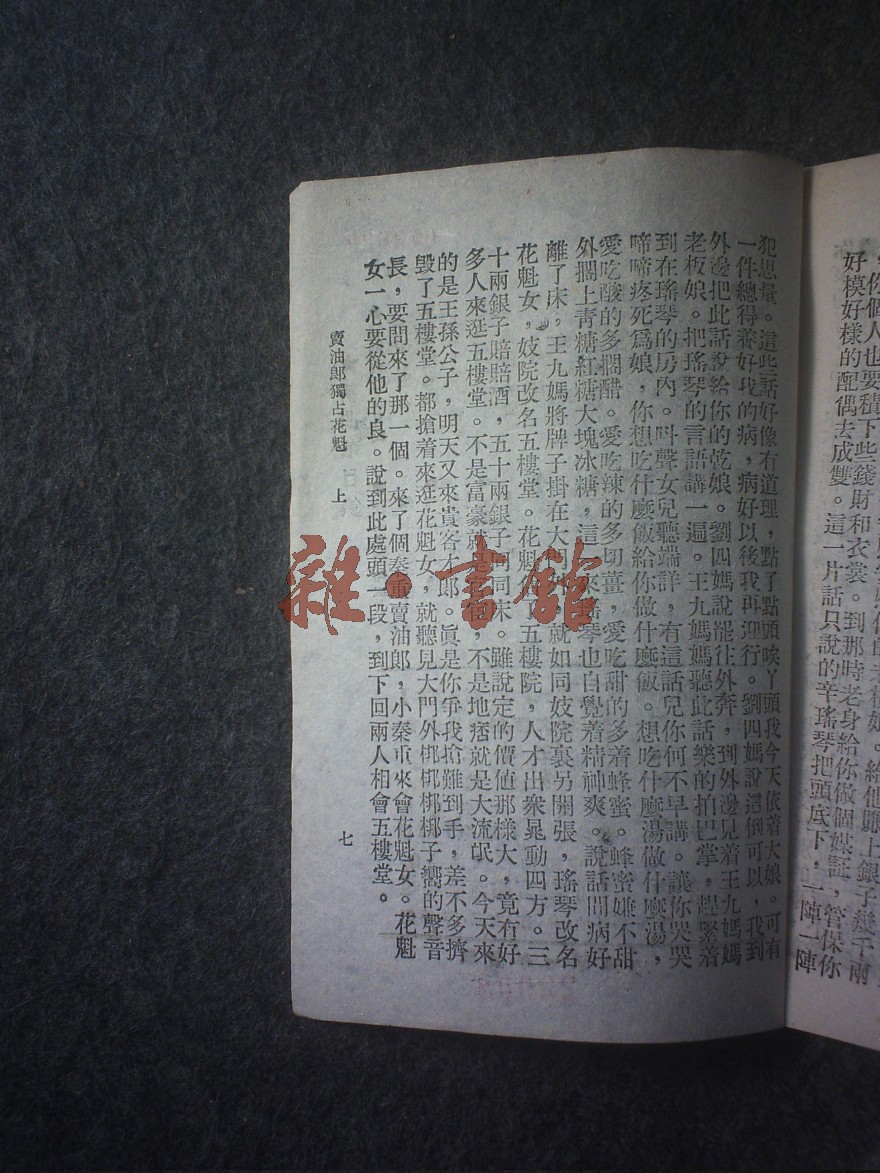 ，你個人也要積下些錢財和衣裳。到那時老身給你做個媒証，管保你
好模好樣的配偶去成雙。這一片話只說的辛瑤琴把頭底下，一陣一陣
犯思量。這些話好像有道理，點了點頭唉丫頭我今天依着大娘。可有
一件總得養好我的病，病好以後我再迎行。劉四媽說這倒可以，我到
外邊把此話說給你的乾娘。劉四媽說罷往外奔，到外邊見着王九媽媽
老板娘。把瑤琴的言語講一遍。王九媽媽聽此話樂的拍巴掌，趕緊着
到在瑤琴的房內。叫聲女兒聽端詳，有這話兒你何不早講。讓你哭哭
啼啼疼死爲娘，你想吃什麼飯給你做什麼飯。想吃什麼湯做什麼湯，
愛吃酸的多擱醋。愛吃辣的多切薑，愛吃甜的多着蜂蜜。蜂蜜嫌不甜
外擱上青糖紅糖大塊冰糖，這來瑤琴也自覺着精神爽。說話間病好
離了床，王九媽將牌子掛在大門就如同妓院裏另開張，瑤琴改名
花魁女，妓院改名五樓堂。花魁了五樓院，人才出衆晃動四方。三
十兩銀子賠賠酒，五十兩銀子同床。雖說定的價値那樣大，竟有好
多人來逛五樓堂。不是富豪就，不是地痞就是大流氓。今天來
的是王孫公子，明天又來貴客才郎。眞是你爭我搶難到手，差不多擠
毀了五樓堂。都搶着來逛花魁女，就聽見大門外梆梆梆梆子嚮的聲音
長，要問來了那一個。來了個秦重賣油郎，小秦重來會花魁女。花魁
女一心要從他的良。說到此處頭一段，到下回兩人相會五樓堂。
賣油郎獨占花魁　上
七
雜·書館